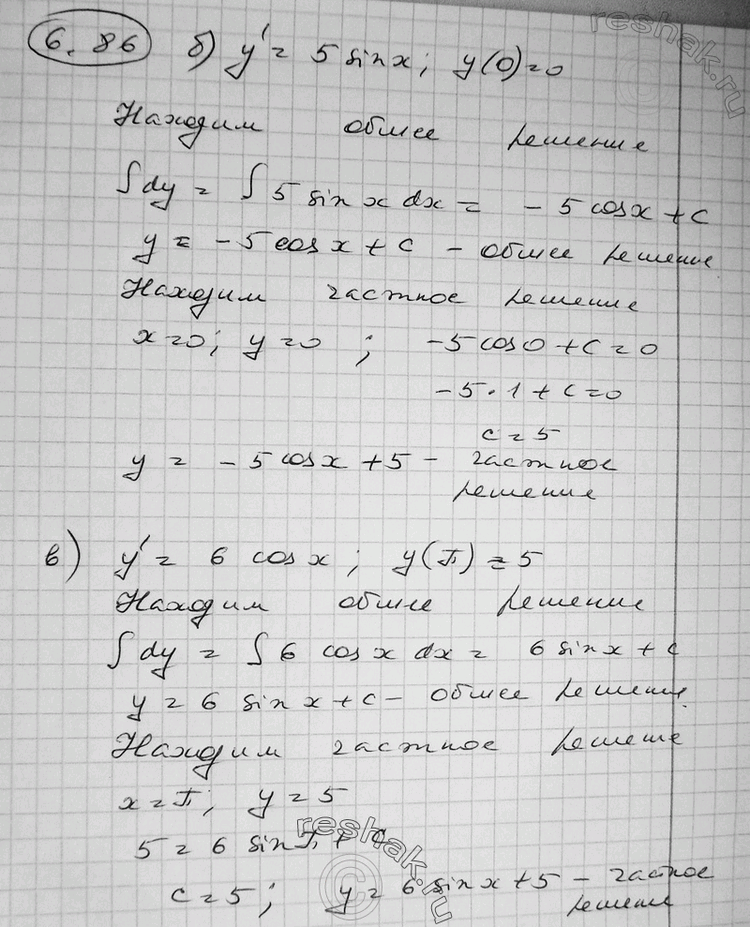 6.86 б) y' = 5 sin x; y(0)=0
Находим общее решение
∫dy = ∫5 sin x dx = -5 cos x + c
y = -5 cos x + c - общее решение
Находим частное решение
x=0; y=0; -5 cos 0 + c = 0
-5·1 + c = 0
c = 5
y = -5 cos x + 5 - частное
решение
в) y' = 6 cos x; y(π) = 5
Находим общее решение
∫dy = ∫6 cos x dx = 6 sin x + c
y = 6 sin x + c - общее решение
Находим частное решение
x = π; y = 5
5 = 6 sin π + c
c = 5; y = 6 sin x + 5 - частное
решение
reshak.ru
reshak.ru